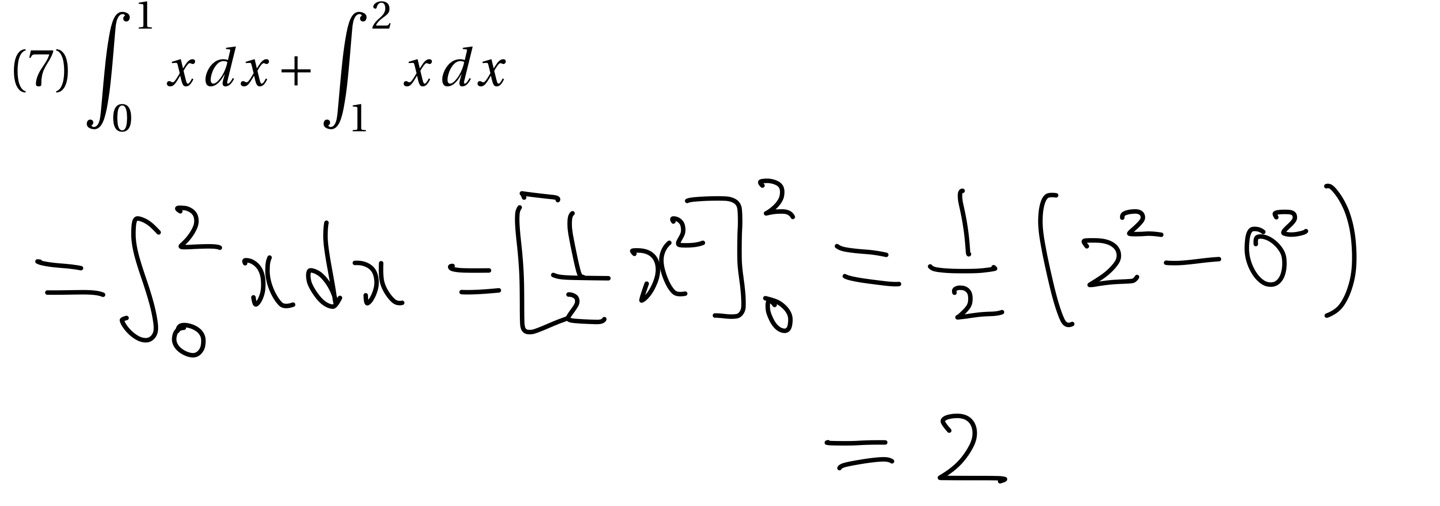 (7) ∫₀¹ x dx + ∫₁² x dx
= ∫₀² x dx = [1/2 x²]₀² = 1/2 (2² − 0²)
= 2